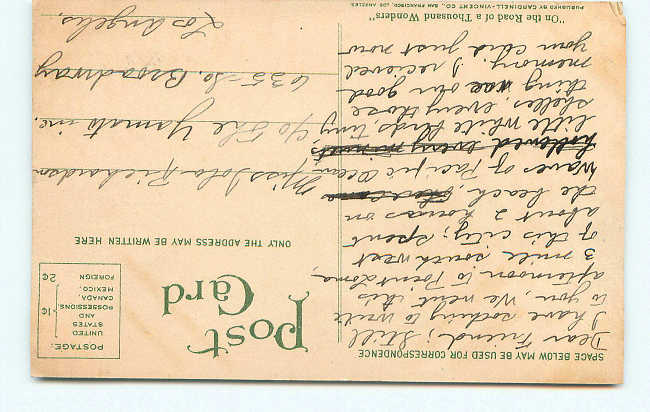 SPACE BELOW MAY BE USED FOR CORRESPONDENCE
Post
Card
POSTAGE.
UNITED
STATES
AND
POSSESSIONS,
CANADA,
MEXICO,
1¢
FOREIGN
2¢
ONLY THE ADDRESS MAY BE WRITTEN HERE
Dear Friend; Still
I have nothing to write
to you, We went this
afternoon to Point Lome,
3 mile south west
of this city; spent
about 2 hours on
the beach,
Waves of Pacific Ocean,
little white birds tiny
shelles, every those
thing was our good
memory. I recieved
your card just now
Miss Lola Richardson
c/o The Yamato inc,
635 - So. Broadway
Los Angeles,
"On the Road of a Thousand Wonders"
PUBLISHED BY CARDINELL-VINCENT CO., SAN FRANCISCO, LOS ANGELES